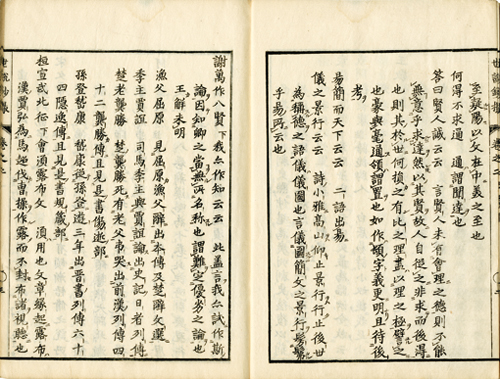 至襄陽以文在中美之至也
何得不求通　通謂聞達也
答曰賢人誠云云　言賢人未有會理之德則不能
無意乎求達然以其賢故人自從之非求而後得
也則其於世何損之有比之理盡以理之極譬之
也豪與毫通領謂置也如作領字義更明且待後
考
易簡而天下云云　二語出易
儀之景行云云　詩小雅高山仰止景行行止後世
為稱德之語儀儀圖也言儀圖簡文之景行
乎易所云也
謝萬作八賢下我么作知云云　此蓋言我么試作斯
論因知卿之當無所名稱也謂難定優劣之論也
王解未明
漁父屈原　見屈原漁父辭出本傳及楚辭文選
季主賈誼　司馬季主與賈誼論出史記日者列傳
楚老龔勝　楚龔勝死有老父弔哭出前漢列傳四
十二龔勝傳且見是書傷逝部
孫登嵇康　嵇康從孫登遊三年出晉書列傳六十
四隱逸傳且見是書
桓宣武北征下會須露布文　須用也文章緣起露布
漢賈弘為馬超伐曹操作露而不封布諸視聽也